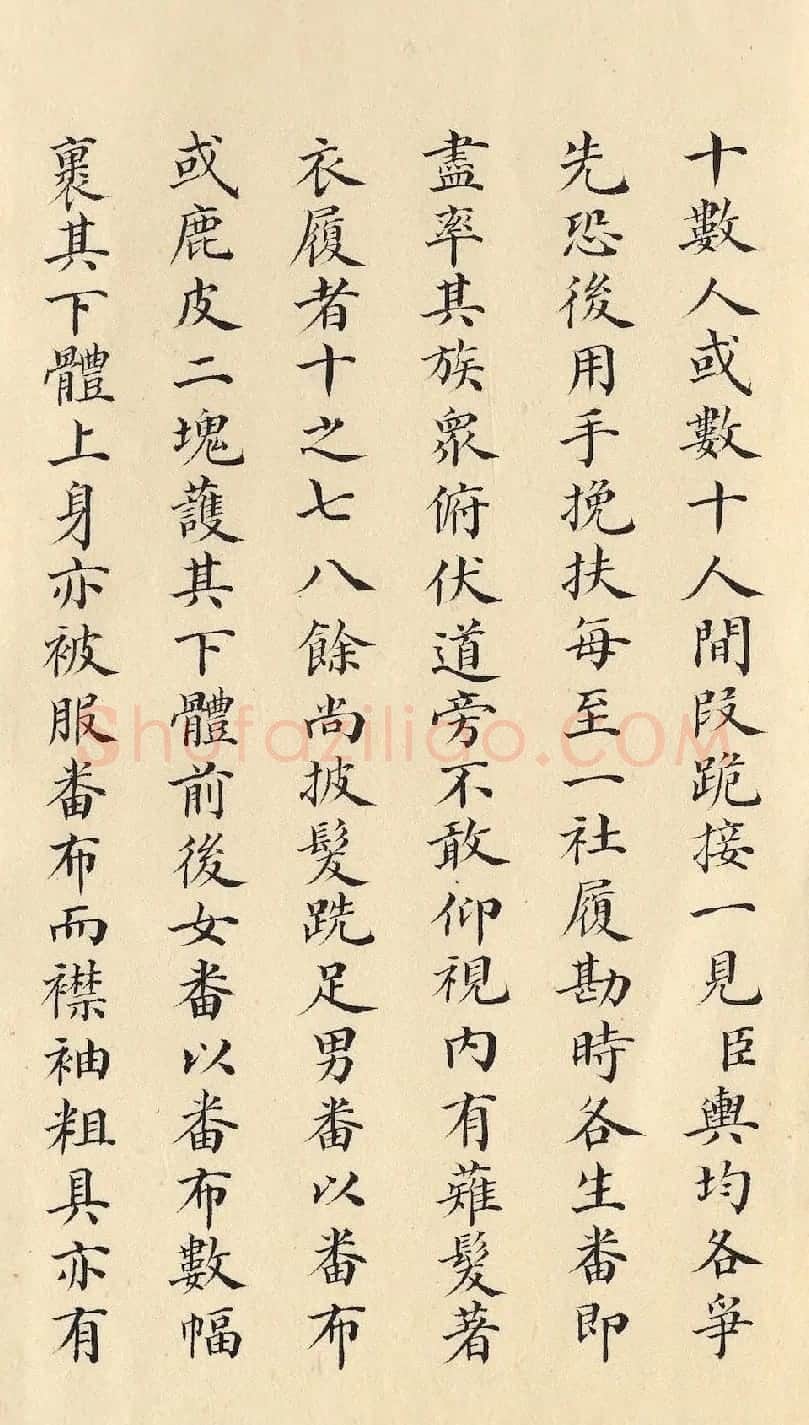 十數人或數十人間段跪接一見臣輿均各爭
先恐後用手挽扶每至一社履勘時各生番即
盡率其族眾俯伏道旁不敢仰視內有薙髮著
衣履者十之七八餘尚披髮跣足男番以番布
或鹿皮二塊護其下體前後女番以番布數幅
裹其下體上身亦被服番布而襟袖粗具亦有
Shufaziliao.COM